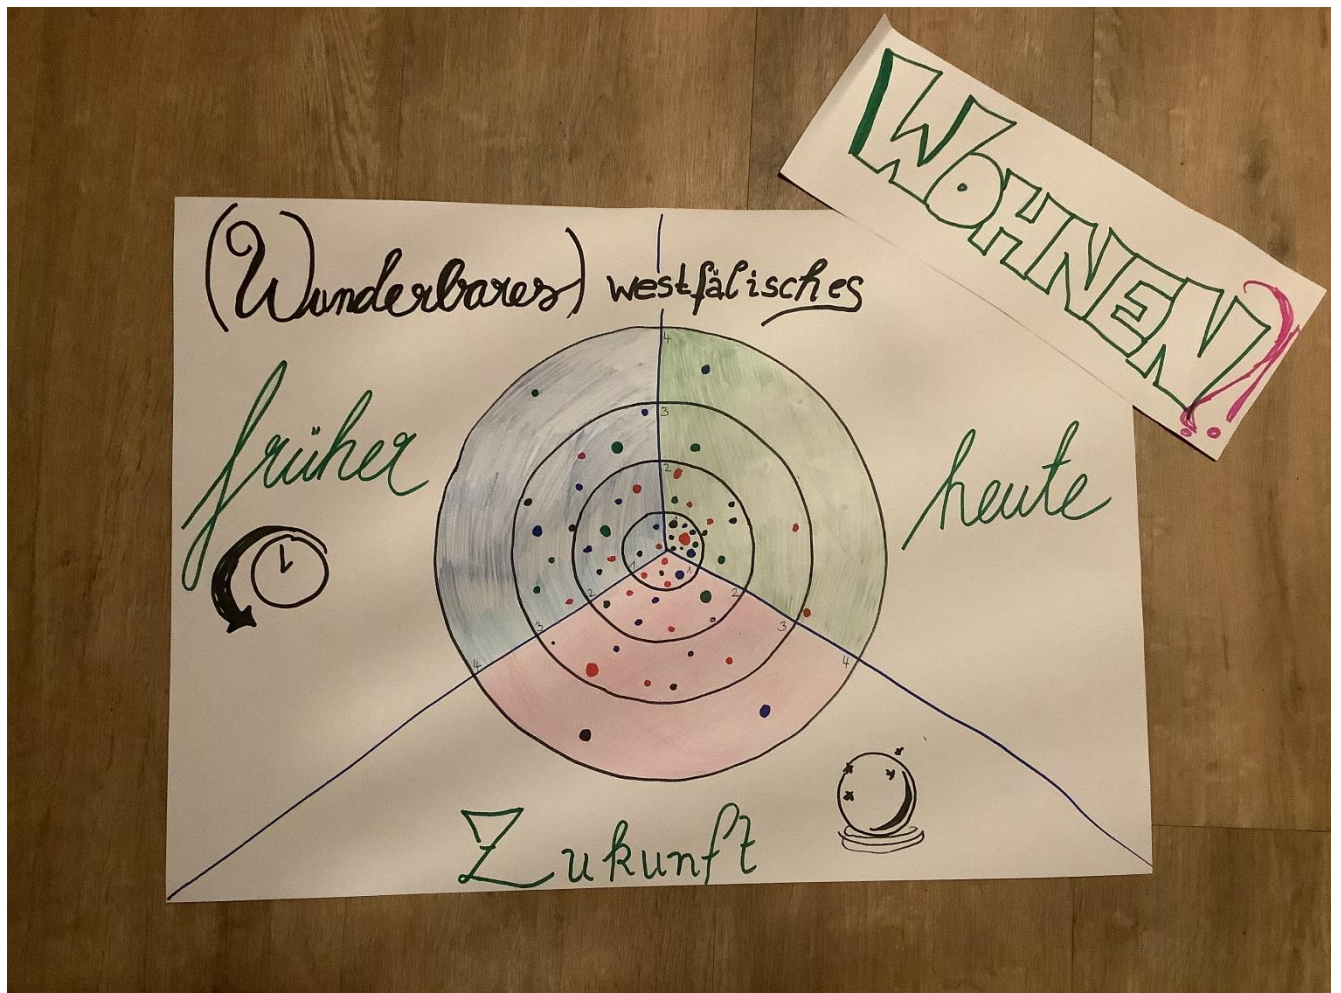 (Wunderbares) westfälisches
WOHNEN?!
früher
heute
Zukunft
4
3
2
1
1
2
2
3
3
4
4